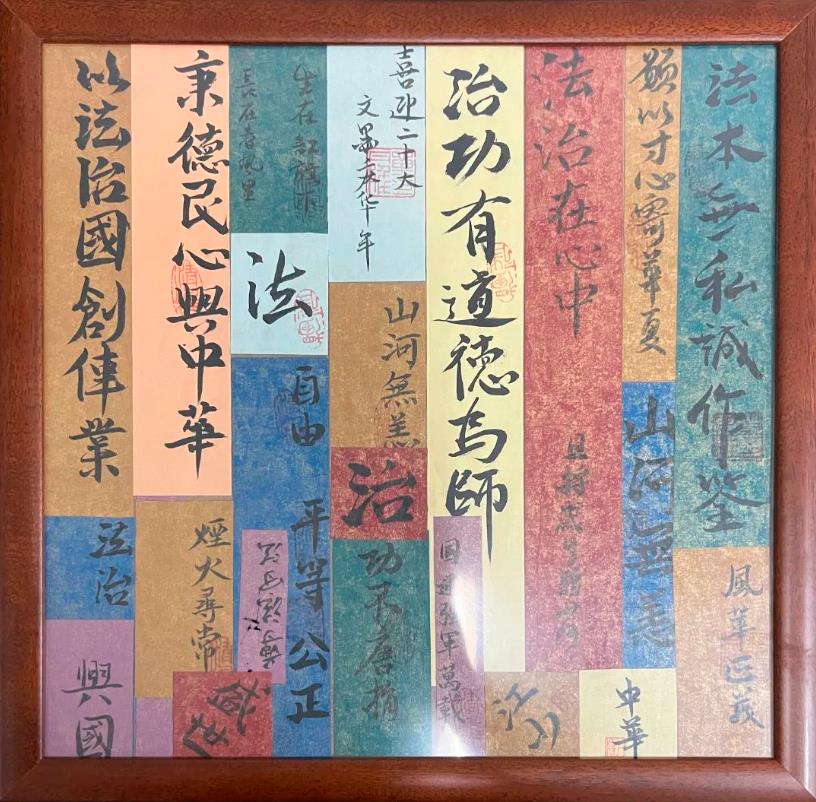 法本無私誠作鉴
風華正義
願以寸心寄華夏
山河無恙
中華
法治在心中
治功有道德為師
國運強軍萬載
喜迎二十大
文墨慶华年
山河無恙
治
功不唐捐
生在紅旗下
長在春風里
法
自由 平等 公正
秉德民心興中華
煙火尋常
以法治國創偉業
法治
興國